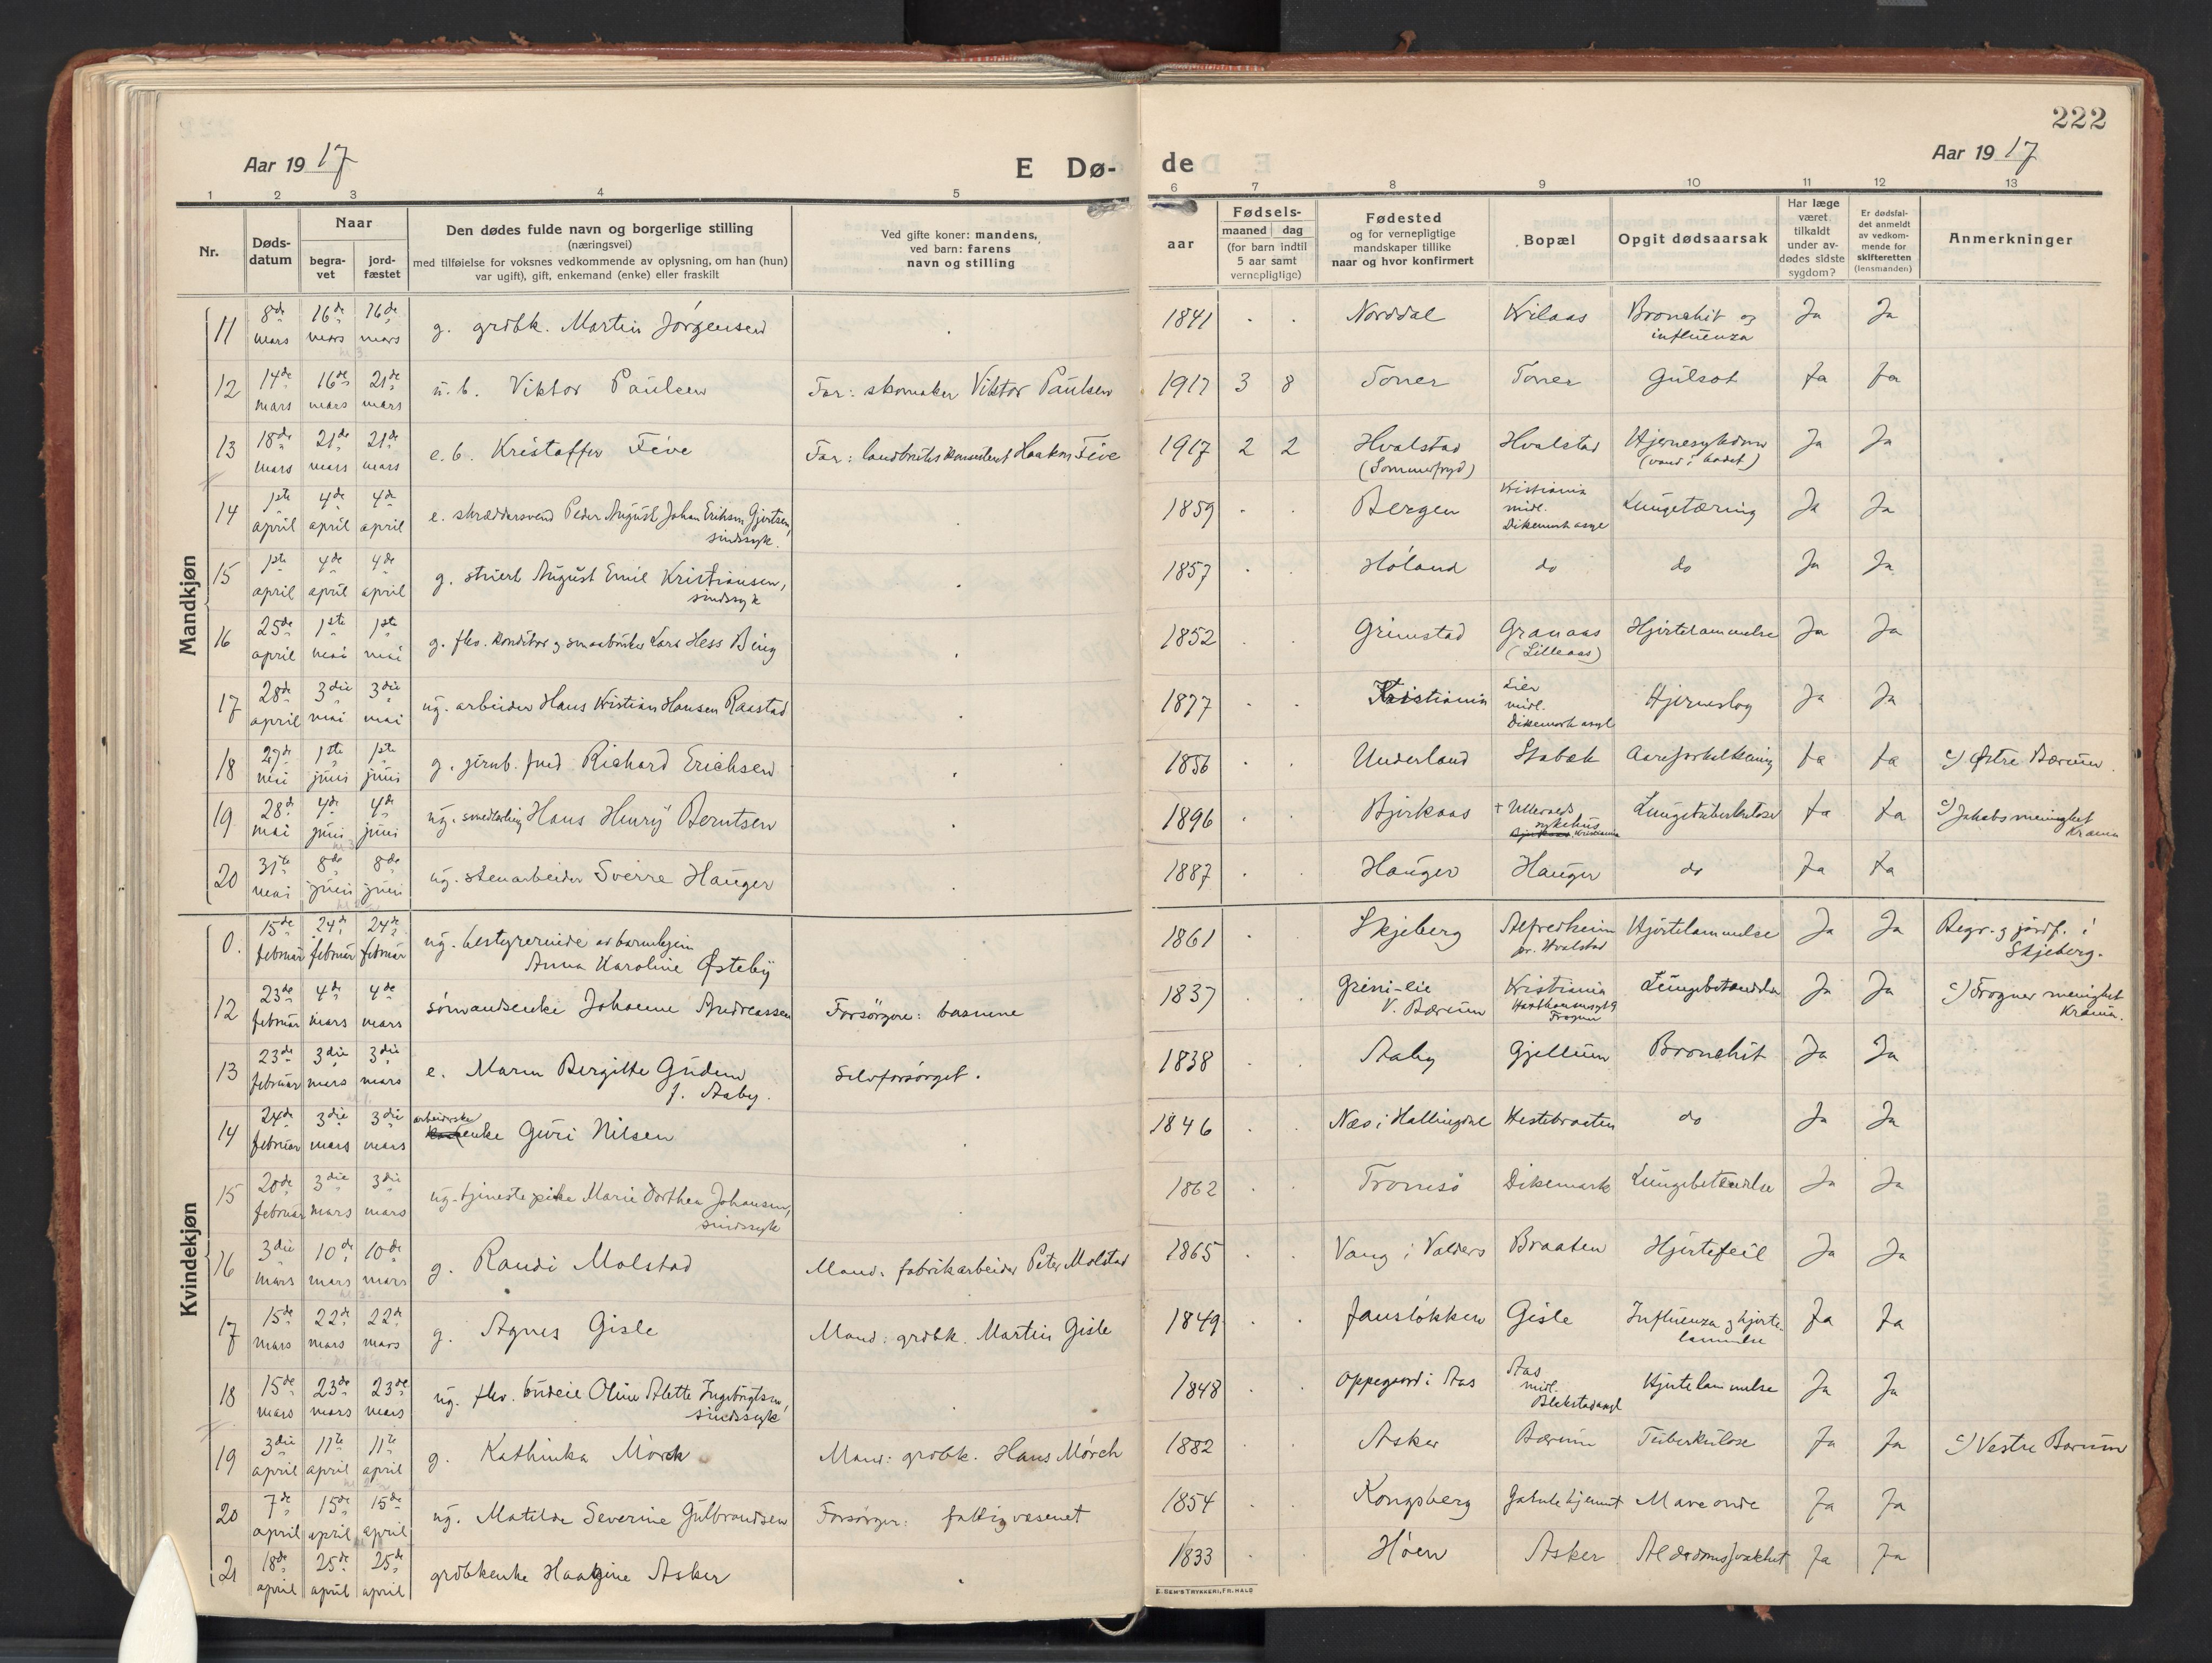 222
Aar 1917
E Dø-
de
Aar 1917
1 2 3 4 5 6 7 8 9 10 11 12 13
Nr.
Døds-
datum
Naar
begra-
vet
jord-
fæstet
Den dødes fulde navn og borgerlige stilling
(næringsvei)
med tilføielse for voksnes vedkommende av oplysning, om han (hun)
var ugift), gift, enkemand (enke) eller fraskilt
Ved gifte koner: mandens,
ved barn: farens
navn og stilling
aar
Fødsels-
maaned dag
(for barn indtil
5 aar samt
vernepligtige)
Fødested
og for vernepligtige
mandskaper tillike
naar og hvor konfirmert
Bopæl
Opgit dødsaarsak
Har læge
været
tilkaldt
under av-
dødes sidste
sygdom?
Er dødsfal-
det anmeldt
av vedkom-
mende for
skifteretten
(lensmanden)
Anmerkninger
Mandkjøn
11 8de mars 16de mars 16de mars g. grdbk. Martin Jørgensen 1841 Norddal Kilaas Bronchit og influenza Ja Ja
12 14de mars 16de mars 21de mars u. b. Viktor Paulsen Far: skomaker Viktor Paulsen 1917 3 8 Toner Toner Gulsot Ja Ja
13 18de mars 21de mars 21de mars e. b. Kristoffer Five Far: landbrukskonsulent Haakon Five 1917 2 2 Hvalstad (Sommerfryd) Hvalstad Hjernesykdom (vand i hodet) Ja Ja
14 1ste april 4de april 4de april e. skræddersvend Peder August Johan Erikson Gjertsen, sindssyk. 1859 Bergen Kristiania midl. Dikemark asyl Lungetæring Ja Ja
15 1ste april 4de april 4de april g. August Emil Kristiansen, sindssyk 1857 Høland do do Ja Ja
16 25de april 1ste mai 1ste mai g. fhv. konditor og smaabruker Lars Hess Bing 1852 Grimstad Granaas (Lilleaas) Hjertelammelse Ja Ja
17 28de april 3die mai 3die mai ug. arbeider Hans Kristian Hansen Raastad 1877 Kristiania Lier midl. Dikemark asyl Hjerneslag Ja Ja
18 27de mai 1ste juni 1ste juni g. jernb. fuld Richard Erichsen 1856 Underland Stabæk Aareforkalkning Ja Ja c) Østre Bærum.
19 28de mai 4de juni 4de juni ug. smedlærling Hans Henry Berntsen 1896 Bjerkaas + Ullevaals sykehus Kristiania Lungetuberkulose Ja Ja c) Jakobs menighet Krania
20 31te mai 8de juni 8de juni ug. stenarbeider Sverre Hauger 1887 Hauger Hauger do Ja Ja
Kvindekjøn
0. 15de februar 24de februar 24de februar ug. bestyrerinde av barnehjem Anna Karoline Østeby 1861 Skjeberg Alfredheim pr. Hvalstad Hjertelammelse Ja Ja Begr. og jordf. i Skjeberg.
12 23de februar 4de mars 4de mars sømandsenke Johanne Andreassen Forsørgere: barnene 1837 Grini-eie V. Bærum Kristiania Frogner Lungebetændelse Ja Ja c) Frogner menighet Krania.
13 23de februar 3die mars 3die mars e. Maren Bergitte Gudem f. Aaby. Selvforsørget. 1838 Aaby Gjellum Bronchit Ja Ja
14 24de februar 3die mars 3die mars arbeiderske enke Guri Nilsen 1846 Næs i Hallingdal Hestebraaten do Ja Ja
15 20de februar 3die mars 3die mars ug. tjenestepike Marie Dorthea Johansen, sindssyk 1862 Tromsø Dikemark Lungebetændelse Ja Ja
16 3die mars 10de mars 10de mars g. Randi Molstad Mand: fabrikarbeider Peter Molstad 1865 Vang i Valders Braaten Hjertefeil Ja Ja
17 15de mars 22de mars 22de mars g. Agnes Gisle Mand: grdbk. Martin Gisle 1849 Jansløkken Gisle Influenza og hjertelammelse Ja Ja
18 15de mars 23de mars 23de mars ug. fhv. budeie Oline Alette Ingebrigtsen, sindssyk 1848 Oppegaard i Aas Aas midl. Blakstad asyl Hjertelammelse Ja Ja
19 3die april 11te april 11te april g. Kathinka Mørch Mand: grdbk. Hans Mørch 1882 Asker Bærum Tuberkulose Ja Ja c) Vestre Bærum
20 7de april 15de april 15de april ug. Matilde Severine Gulbrandsen Forsørger: fattigvæsenet 1854 Kongsberg Gamlehjemmet Mave onde Ja Ja
21 18de april 25de april 25de april grdbkenke Haagine Asker 1833 Høen Asker Alderdomssvakhet Ja Ja
E. SEM'S TRYKKERI, FR. HALD